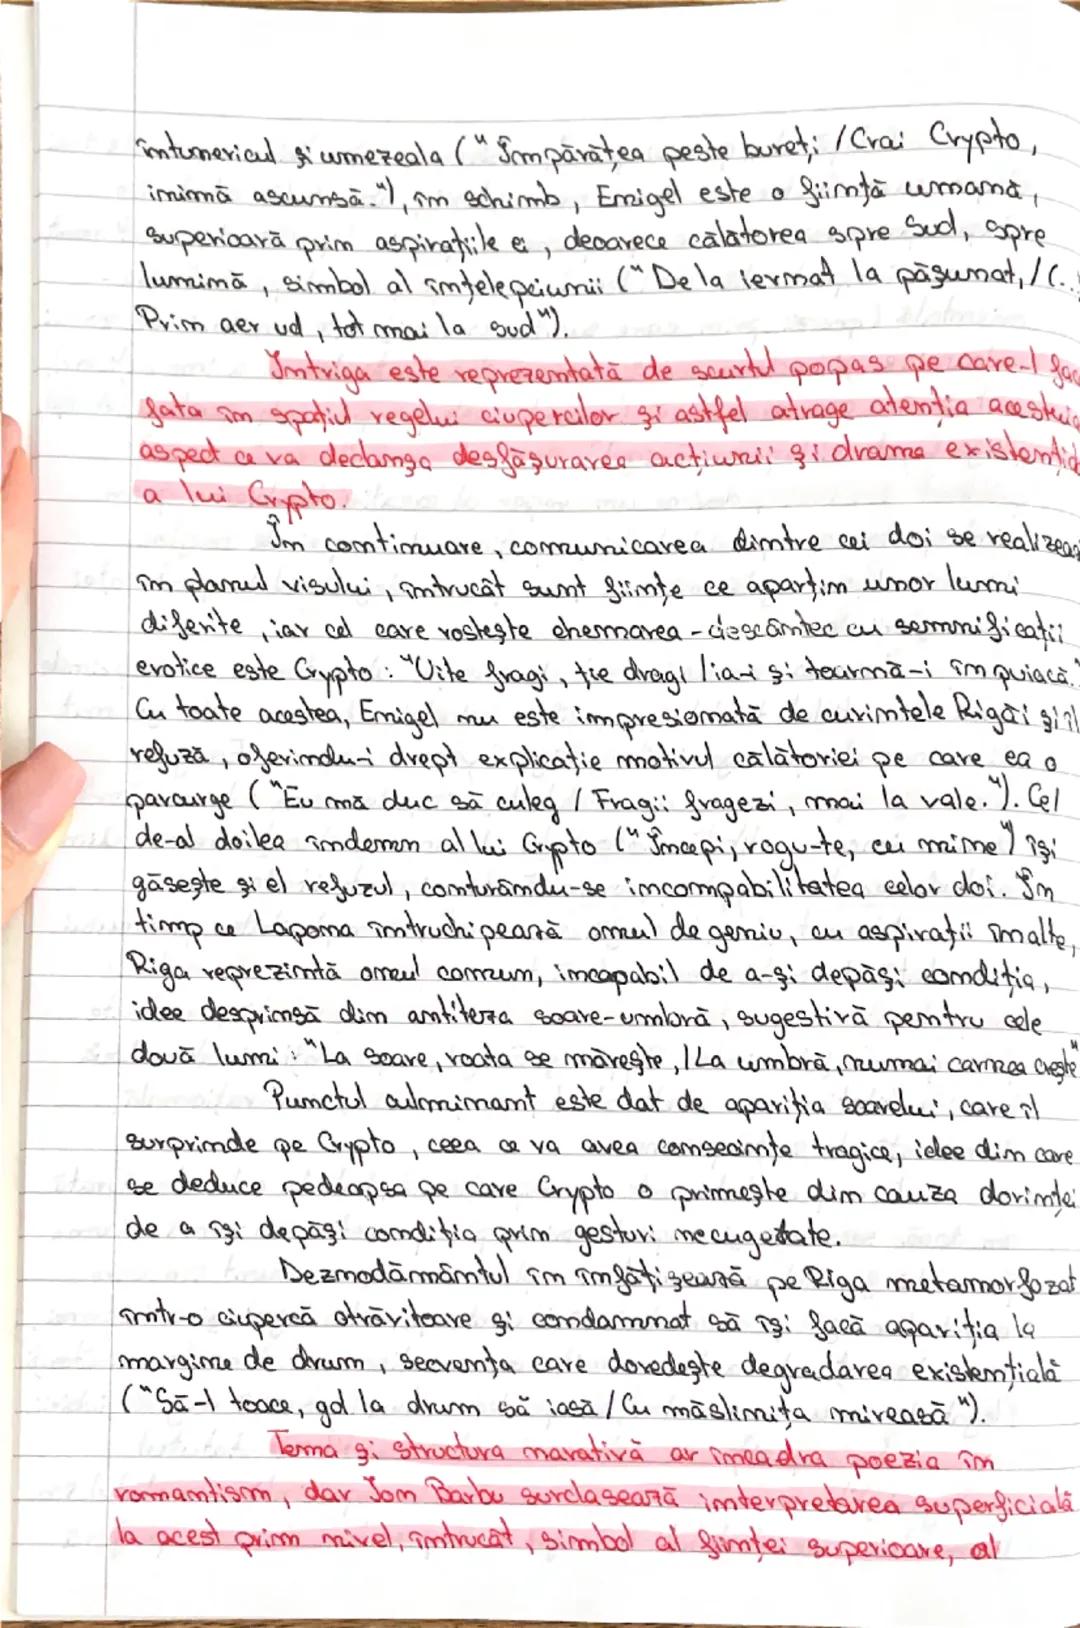 întunericul și umezeala ("Împărățea peste bureți / Crai Crypto,
inimă ascunsă."), în schimb, Enigel este o ființă umană,
superioară prin aspirațiile ei, deoarece călătorea spre Sud, spre
lumină, simbol al înțelepciunii ("De la iernat la pășunat, / (..
Prin aer ud, tot mai la sud").
Intriga este reprezentată de scurtul popas pe care-l fac
fata în spațiul regelui ciupercilor și astfel atrage atenția acestuia
aspect ce va declanșa desfășurarea acțiunii și drama existenția
a lui Crypto.
În continuare, comunicarea dintre cei doi se realizeaz
în planul visului, întrucât sunt ființe ce aparțin unor lumi
diferite, iar cel care rostește chemarea - descântec cu semnificații
erotice este Crypto: "Uite fragi, ție dragi / ia-i și toarnă-i în puiacă."
Cu toate acestea, Enigel nu este impresionată de cuvintele Rigăi și îl
refuză, oferindu-i drept explicație motivul călătoriei pe care ea o
parcurge ("Eu mă duc să culeg / Fragii fragezi, mai la vale."). Cel
de-al doilea îndemn al lui Crypto ("Începi, rogu-te, cu mine") își
găsește și el refuzul, conturându-se incompabilitatea celor doi. În
timp ce Lapona întruchipează omul de geniu, cu aspirații înalte,
Riga reprezintă omul comun, incapabil de a-și depăși condiția,
idee desprinsă din antiteza soare-umbră, sugestivă pentru cele
două lumi: "La soare, roata se mărește, / La umbră, numai carnea crește"
Punctul culminant este dat de apariția soarelui, care îl
surprinde pe Crypto, ceea ce va avea consecințe tragice, idee din care
se deduce pedeapsa pe care Crypto o primește din cauza dorinței
de a își depăși condiția prin gesturi necugetate.
Deznodământul îm înfățișează pe Riga metamorfozat
într-o ciupercă otrăvitoare și condamnat să își facă apariția la
margine de drum, secvența care dovedește degradarea existențială
("Să-l toace, gol la drum să iasă / Cu măslinița mireasă").
Tema și structura narativă ar încadra poezia în
romantism, dar Ion Barbu surclasează interpretarea superficială
la acest prim nivel, întrucât, simbol al ființei superioare, al